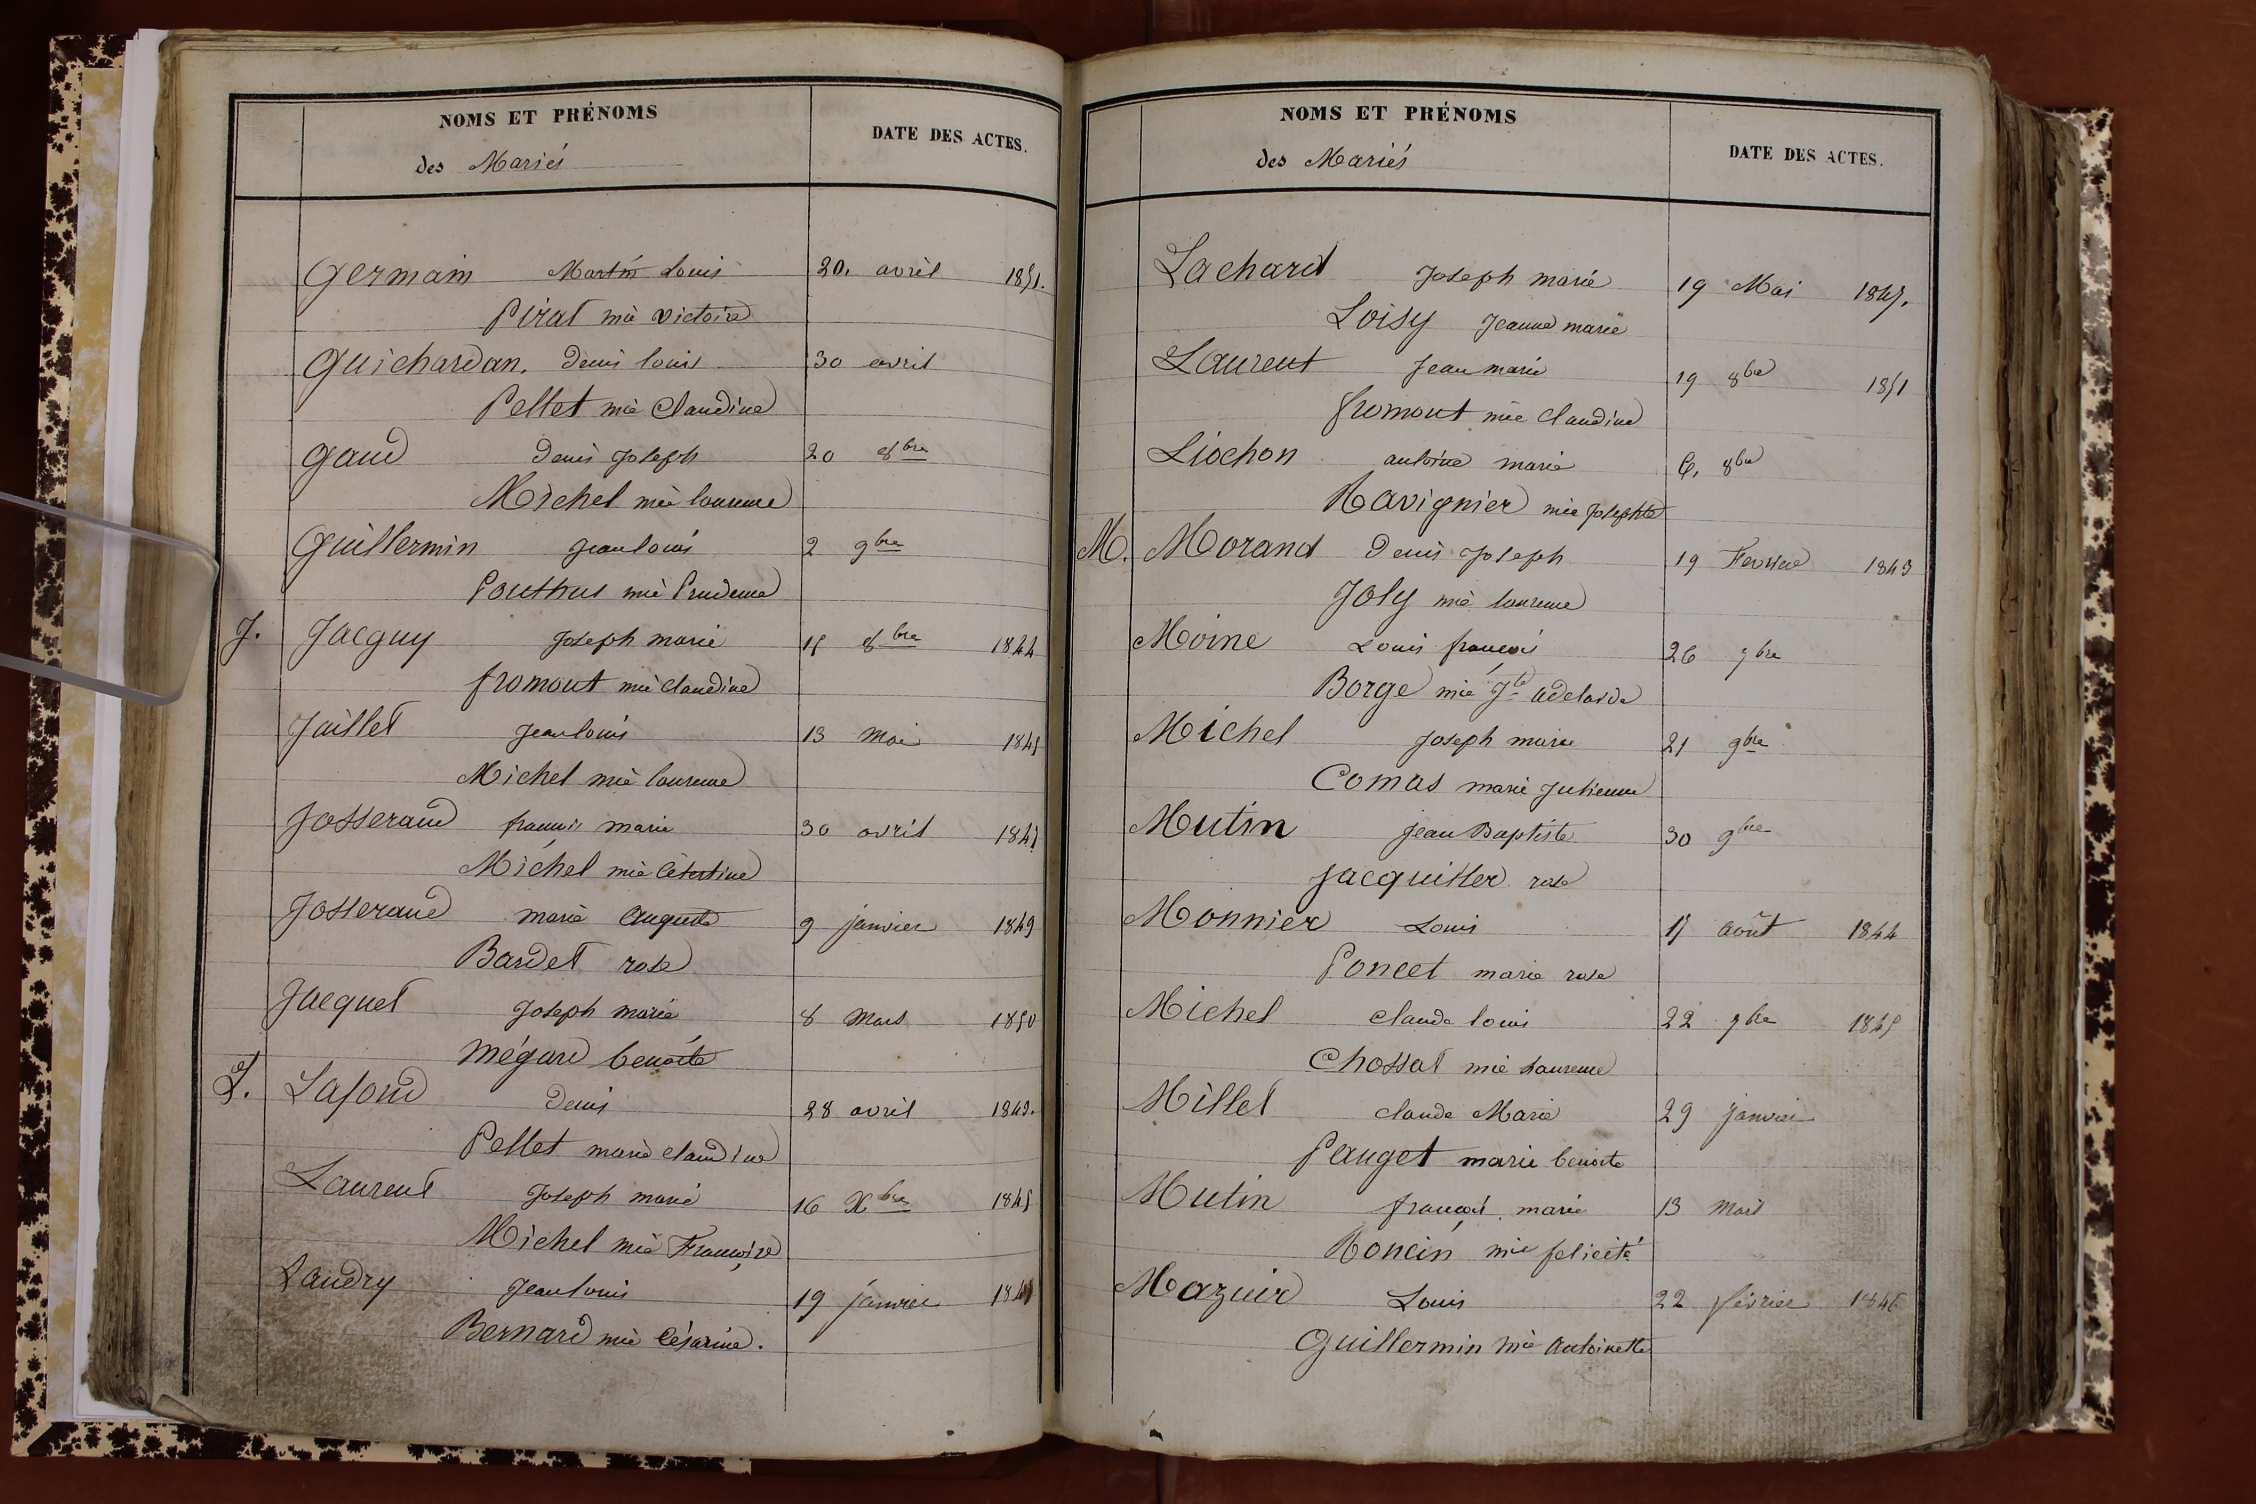 NOMS ET PRÉNOMS DATE DES ACTES.
des Mariés
Germain Martin Louis 20. avril 1851.
Pirat mie victoire
Guichardan. denis louis 30 avril
Pellet mie Claudine
Gaud denis Joseph 20 8bre
Michel mie laurence
Guillermin jean louis 2 9bre
Pouthus mie Prudence
J. Jacquy Joseph marie 15 8bre 1844
fromont mie Claudine
Jaillet jean louis 13 mai 1845
Michel mie laurence
Josserand françois marie 30 avril
Michel mie Célestine
Josserand marie auguste 9 janvier 1849
Bardet rose
Jacquet Joseph marie 8 Mars 1850
Mégard benoite
L. Lafond denis 28 avril 1843.
Pellet marie claudine
Laurent Joseph marie 16 Xbre 1845
Michel mie Françoise
Landry jean louis 19 janvier
Bernard mie Césarine.
NOMS ET PRÉNOMS DATE DES ACTES.
des Mariés
Lachard Joseph marie 19 Mai
Loisy Jeanne marie
Laurent Jean marie 19 8bre 1851
fromont mie Claudine
Liochon antoine marie 6. 8bre
Ravignier mie Josephte
M. Morand Denis Joseph 19 Fevrier 1843
Joly mie laurence
Moine Louis françois 26 9bre
Borge mie Jte adelaide
Michel Joseph marie 21 9bre
Comas marie Julienne
Mutin jean Baptiste 30 9bre
Jacquiller rose
Monnier Louis 15 août 1844
Poncet marie rose
Michel Claude louis 22 9bre 1845
Chossat mie Laurence
Millet claude Marie 29 janvier
Pauget marie benoite
Mutin françois marie 13 Mars
Roncin mie felicité
Mazuir Louis 22 février 1846
Guillermin mie antoinette